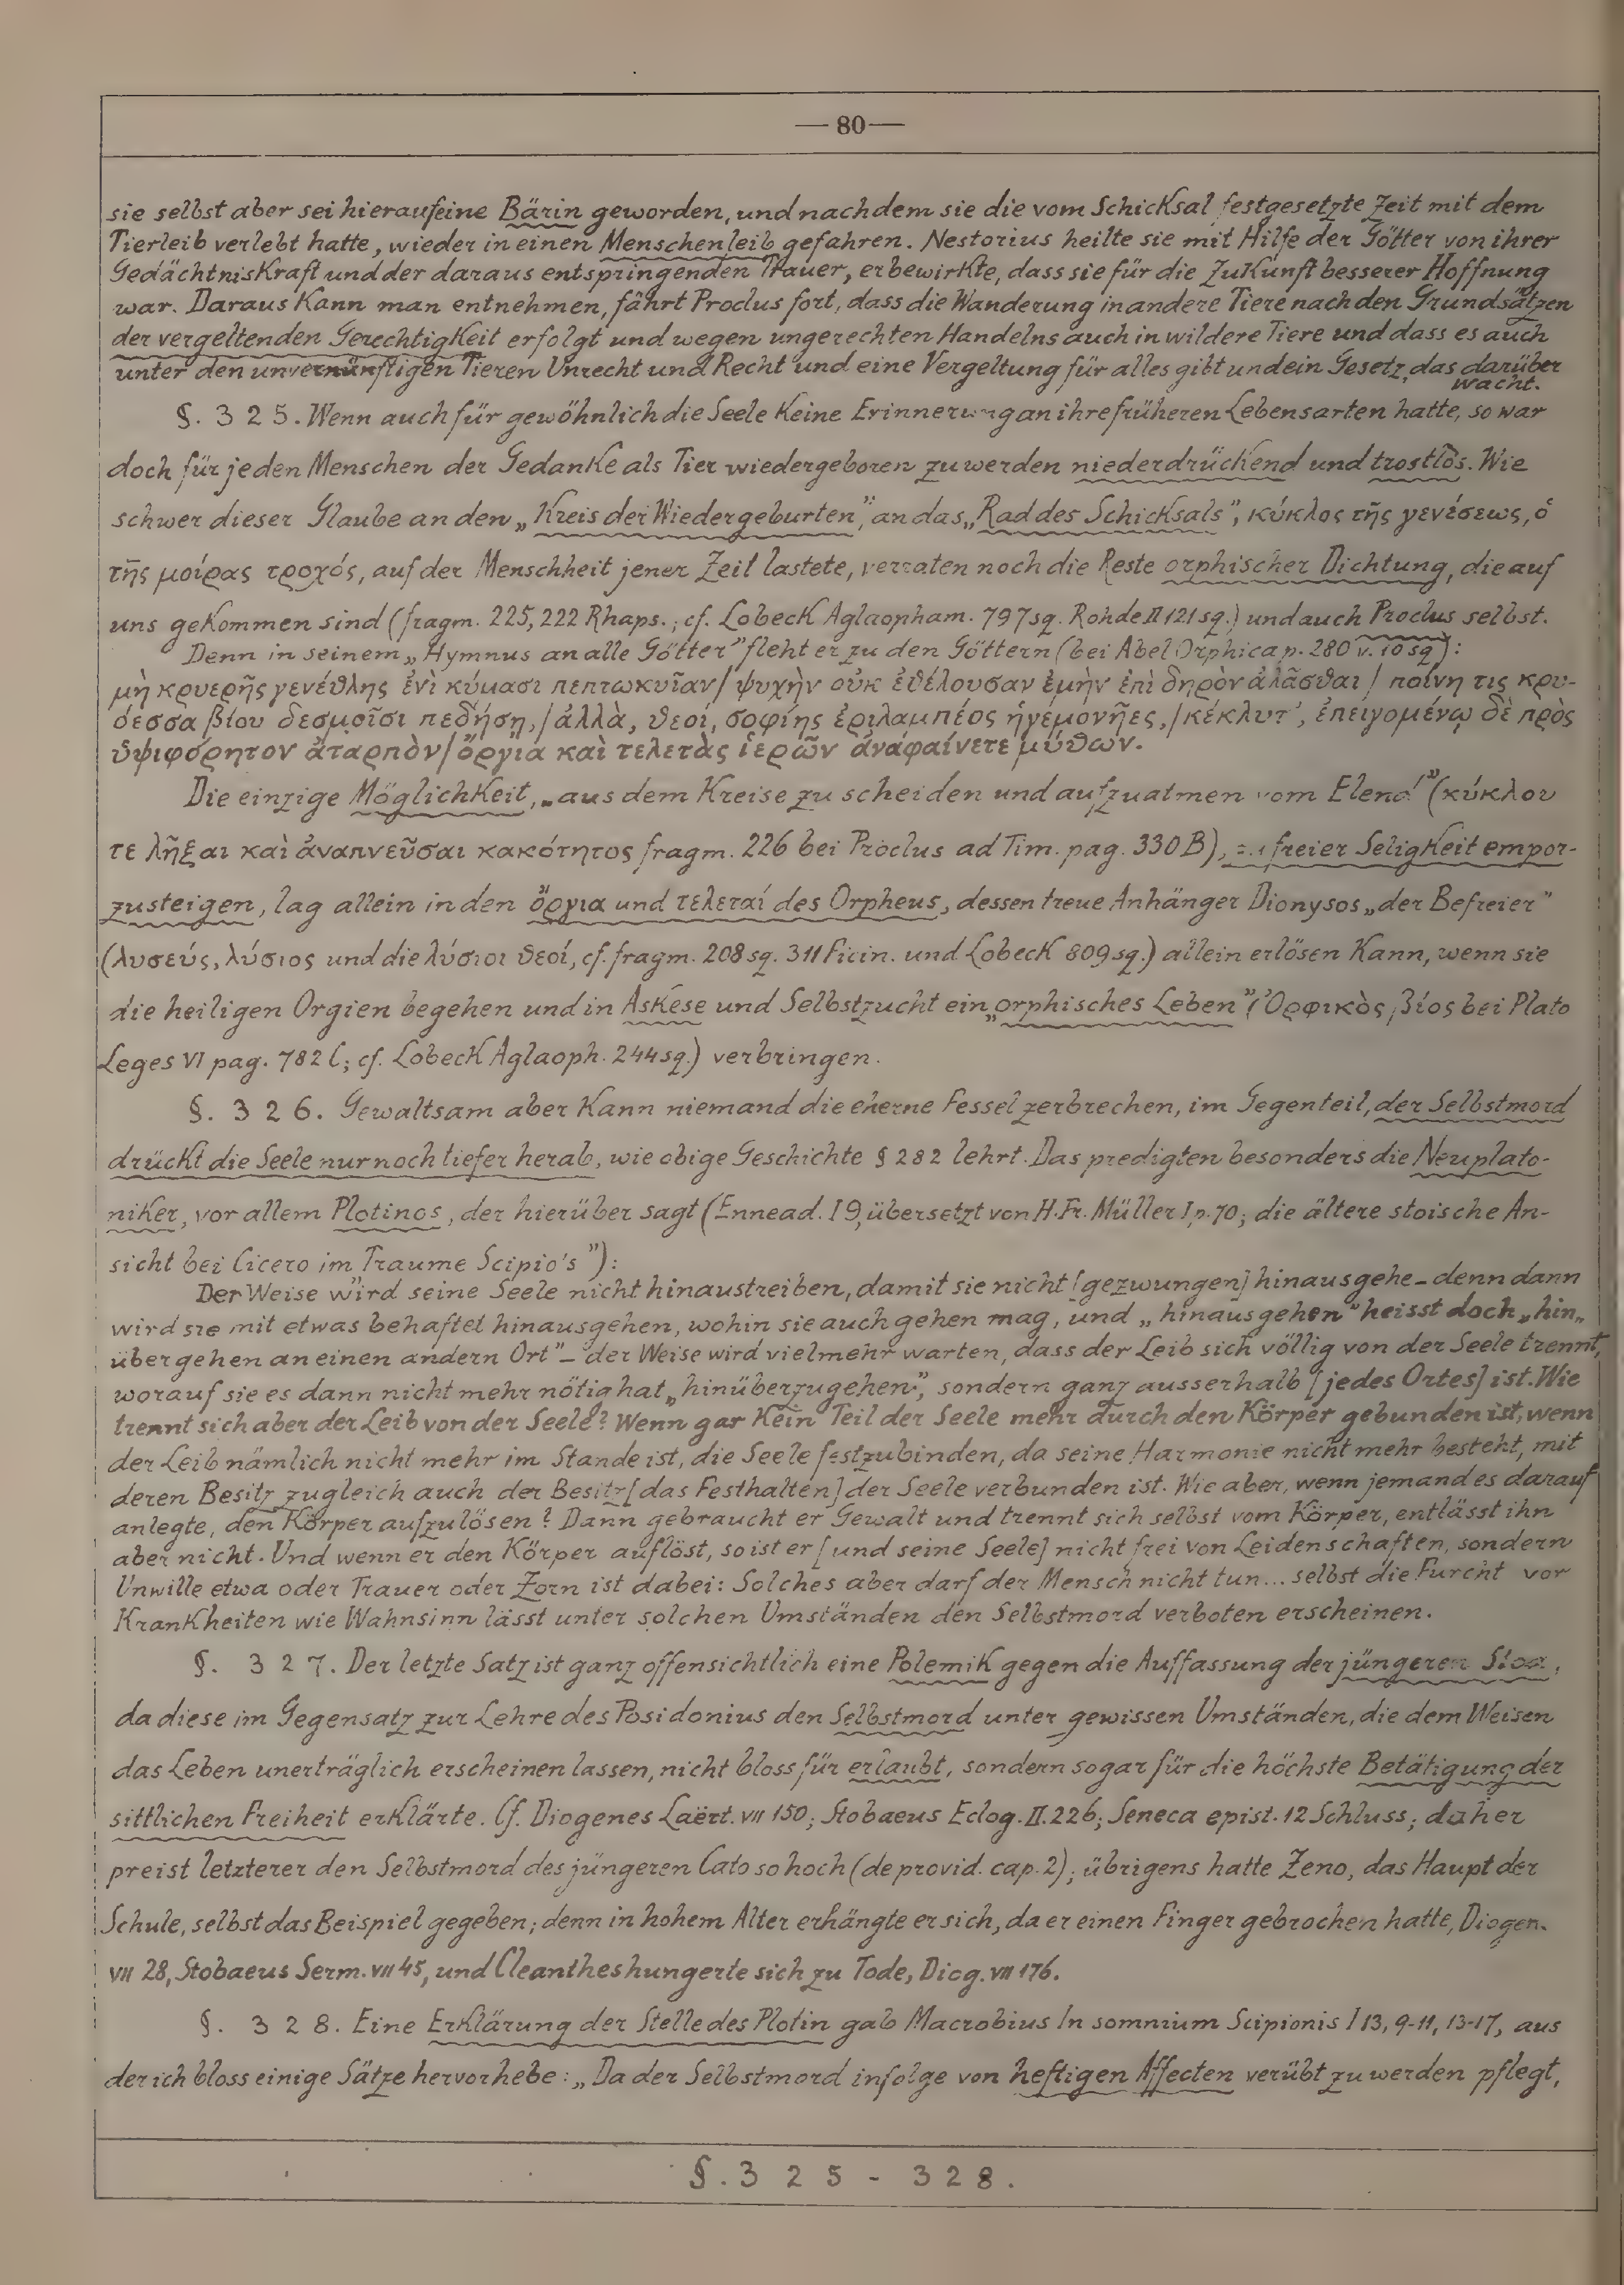 — 80 —
sie selbst aber sei hierauf eine Bärin geworden, und nachdem sie die vom Schicksal festgesetzte Zeit mit dem
Tierleib verlebt hatte, wieder in einen Menschenleib gefahren. Nestorius heilte sie mit Hilfe der Götter von ihrer
Gedächtniskraft und der daraus entspringenden Trauer, er bewirkte, dass sie für die Zukunft besserer Hoffnung
war. Daraus kann man entnehmen, fährt Proclus fort, dass die Wanderung in andere Tiere nach den Grundsätzen
der vergeltenden Gerechtigkeit erfolgt und wegen ungerechten Handelns auch in wildere Tiere und dass es auch
unter den unvernünftigen Tieren Unrecht und Recht und eine Vergeltung für alles gibt und ein Gesetz, das darüber
wacht.
§. 325. Wenn auch für gewöhnlich die Seele keine Erinnerung an ihre früheren Lebensarten hatte, so war
doch für jeden Menschen der Gedanke als Tier wiedergeboren zu werden niederdrückend und trostlos. Wie
schwer dieser Glaube an den „Kreis der Wiedergeburten”, an das „Rad des Schicksals”, κύκλος τῆς γενέσεως, ὁ
τῆς μοίρας τροχός, auf der Menschheit jener Zeit lastete, verraten noch die Reste orphischer Dichtung, die auf
uns gekommen sind (fragm. 225, 222 Rhaps.; cf. Lobeck Aglaopham. 797 sq. Rohde II 121 sq.) und auch Proclus selbst.
Denn in seinem „Hymnus an alle Götter” fleht er zu den Göttern (bei Abel Orphica p. 280 v. 10 sq):
μὴ κρυερῆς γενέθλης ἐνὶ κύμασι πεπτωκυῖαν/ ψυχὴν οὐκ ἐθέλουσαν ἐμὴν ἐπὶ δηρὸν ἀλᾶσθαι / ποίνη τις κρυ-
όεσσα βίου δεσμοῖσι πεδήσῃ,/ ἀλλὰ, θεοί, σοφίης ἐριλαμπέος ἡγεμονῆες,/ κέκλυτ', ἐπειγομένῳ δὲ πρὸς
ὑψιφόρητον ἀταρπὸν/ ὄργια καὶ τελετὰς ἱερῶν ἀναφαίνετε μύθων.
Die einzige Möglichkeit, „aus dem Kreise zu scheiden und aufzuatmen vom Elend” (κύκλου
τε λῆξαι καὶ ἀναπνεῦσαι κακότητος fragm. 226 bei Proclus ad Tim. pag. 330 B), zu freier Seligkeit empor-
zusteigen, lag allein in den ὄργια und τελεταί des Orpheus, dessen treue Anhänger Dionysos „der Befreier”
(λυσεύς, λύσιος und die λύσιοι θεοί, cf. fragm. 208 sq. 311 Ficin. und Lobeck 809 sq.) allein erlösen kann, wenn sie
die heiligen Orgien begehen und in Askese und Selbstzucht ein „orphisches Leben” (Ὀρφικὸς βίος bei Plato
Leges VI pag. 782 C; cf. Lobeck Aglaoph. 244 sq.) verbringen.
§. 326. Gewaltsam aber kann niemand die eherne Fessel zerbrechen, im Gegenteil, der Selbstmord
drückt die Seele nur noch tiefer herab, wie obige Geschichte § 282 lehrt. Das predigten besonders die Neuplato-
niker, vor allem Plotinos, der hierüber sagt (Ennead. I 9, übersetzt von H. Fr. Müller I, p. 70; die ältere stoische An-
sicht bei Cicero im „Traume Scipio's”):
Der Weise wird seine Seele nicht hinaustreiben, damit sie nicht [gezwungen] hinausgehe – denn dann
wird sie mit etwas behaftet hinausgehen, wohin sie auch gehen mag, und „hinausgehen” heisst doch „hin-
übergehen an einen andern Ort” – der Weise wird vielmehr warten, dass der Leib sich völlig von der Seele trennt,
worauf sie es dann nicht mehr nötig hat „hinüberzugehen”, sondern ganz ausserhalb [jedes Ortes] ist. Wie
trennt sich aber der Leib von der Seele? Wenn gar kein Teil der Seele mehr durch den Körper gebunden ist, wenn
der Leib nämlich nicht mehr im Stande ist, die Seele festzubinden, da seine Harmonie nicht mehr besteht, mit
deren Besitz zugleich auch der Besitz [das Festhalten] der Seele verbunden ist. Wie aber, wenn jemand es darauf
anlegte, den Körper aufzulösen? Dann gebraucht er Gewalt und trennt sich selbst vom Körper, entlässt ihn
aber nicht. Und wenn er den Körper auflöst, so ist er [und seine Seele] nicht frei von Leidenschaften, sondern
Unwille etwa oder Trauer oder Zorn ist dabei: Solches aber darf der Mensch nicht tun... selbst die Furcht vor
Krankheiten wie Wahnsinn lässt unter solchen Umständen den Selbstmord verboten erscheinen.
§. 327. Der letzte Satz ist ganz offensichtlich eine Polemik gegen die Auffassung der jüngeren Stoa,
da diese im Gegensatz zur Lehre des Posidonius den Selbstmord unter gewissen Umständen, die dem Weisen
das Leben unerträglich erscheinen lassen, nicht bloss für erlaubt, sondern sogar für die höchste Betätigung der
sittlichen Freiheit erklärte. Cf. Diogenes Laërt. VII 150; Stobaeus Eclog. II. 226; Seneca epist. 12 Schluss; daher
preist letzterer den Selbstmord des jüngeren Cato so hoch (de provid. cap. 2); übrigens hatte Zeno, das Haupt der
Schule, selbst das Beispiel gegeben; denn in hohem Alter erhängte er sich, da er einen Finger gebrochen hatte, Diogen.
VII 28, Stobaeus Serm. VII 45, und Cleanthes hungerte sich zu Tode, Diog. VII 176.
§. 328. Eine Erklärung der Stelle des Plotin gab Macrobius In somnium Scipionis I 13, 9-11, 13-17, aus
der ich bloss einige Sätze hervorhebe: „Da der Selbstmord infolge von heftigen Affecten verübt zu werden pflegt,
§. 325 - 328.